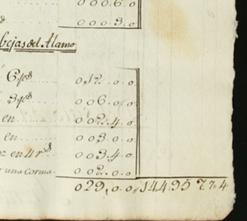 0 0 0 6. 0
0 0 0 3. 0
bejas del Alamo
6 p.os 0, 12. 0. 0
3 p.os 0 0 6. 0. 0
en 0 0 2. 4. 0
en 0 0 3. 0. 0
en 4 r.s 0 0 3. 4. 0
una 0 0 2. 0. 0
0 2 9, 0. 0, 144. 95 77. 4